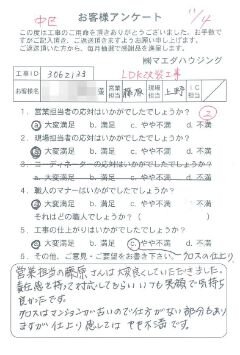 中区
11/4
お客様アンケート
この度は工事のご用命を頂きありがとうございました。お手数で
すがご記入頂き、ご返送頂きますようお願い申し上げます。
ご返送頂いた方から、毎月抽選で感謝品を進呈します。
㈱マエダハウジング
工事ID 3062133 LDK改装工事
様 営業担当 藤原 現場担当 上野 IC担当
1. 営業担当者の応対はいかがでしたでしょうか? ②
a. 大変満足 b. 満足 c. やや不満 d. 不満
2. 現場担当者の応対はいかがでしたでしょうか?
a. 大変満足 b. 満足 c. やや不満 d. 不満
3. コーディネーターの応対はいかがでしたでしょうか?
a. 大変満足 b. 満足 c. やや不満 d. 不満
4. 職人のマナーはいかがでしたでしょうか?
a. 大変満足 b. 満足 c. やや不満 d. 不満
それはどの職人でしょうか?( )
5. 工事の仕上がりはいかがでしたでしょうか?
a. 大変満足 b. 満足 c. やや不満 d. 不満
クロスの仕上り
6. その他、ご意見・ご要望をお書き下さい。
営業担当の藤原さんは大変良くしていただきました。
責任感を持って対応してもらい いつも笑顔で気持ち
良かったです。
クロスはマンションが古いので仕方がない部分もあり
ますが仕上り感としては やや不満です。